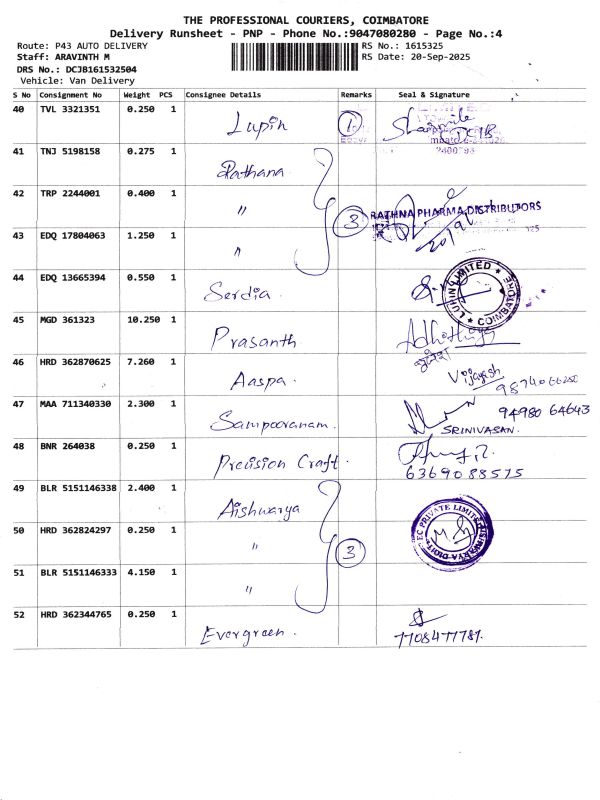 THE PROFESSIONAL COURIERS, COIMBATORE
Delivery Runsheet - PNP - Phone No.:9047080280 - Page No.:4
Route: P43 AUTO DELIVERY RS No.: 1615325
Staff: ARAVINTH M RS Date: 20-Sep-2025
DRS No.: DCJB161532504
Vehicle: Van Delivery
S No Consignment No Weight PCS Consignee Details Remarks Seal & Signature
40 TVL 3321351 0.250 1 Lupin 1
41 TNJ 5198158 0.275 1 Rathana
42 TRP 2244001 0.400 1 " 3 RATHNA PHARMA DISTRIBUTORS
43 EDQ 17804063 1.250 1 "
44 EDQ 13665394 0.550 1 Serdia. LIMITED COIMBATORE
45 MGD 361323 10.250 1 Prasanth.
46 HRD 362870625 7.260 1 Aaspa. Vijayash
47 MAA 711340330 2.300 1 Sampooranam. 94980 64643
SRINIVASAN.
48 BNR 264038 0.250 1 Precision Craft.
6369088575
49 BLR 5151146338 2.400 1 Aishwarya
50 HRD 362824297 0.250 1 " 3 PRIVATE LIMITED
51 BLR 5151146333 4.150 1 "
52 HRD 362344765 0.250 1 Evergreen.
7708477787.